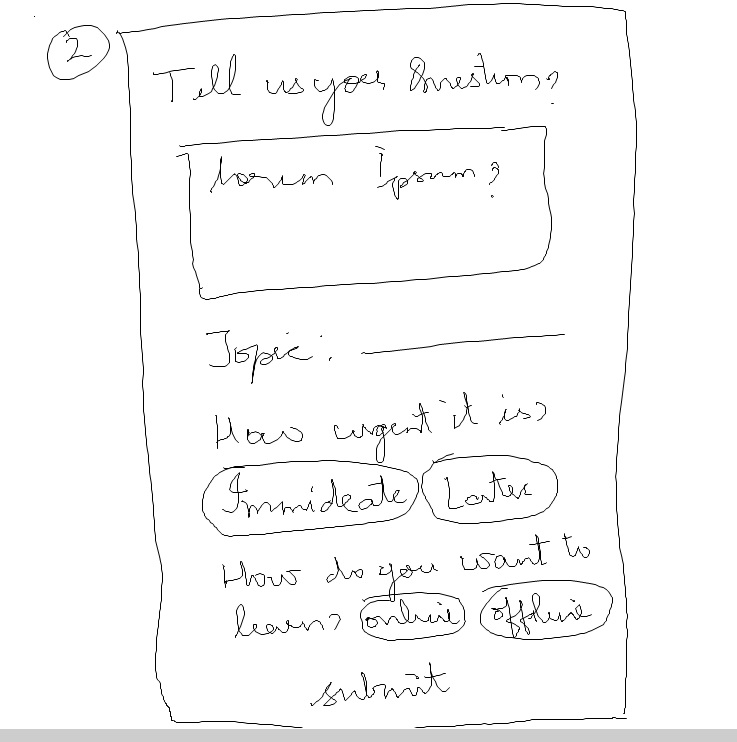 2
Tell us your Question?
Lorum Ipsum?
Topic:
How urgent it is?
Immideate Later
How do you want to
learn? online offline
submit